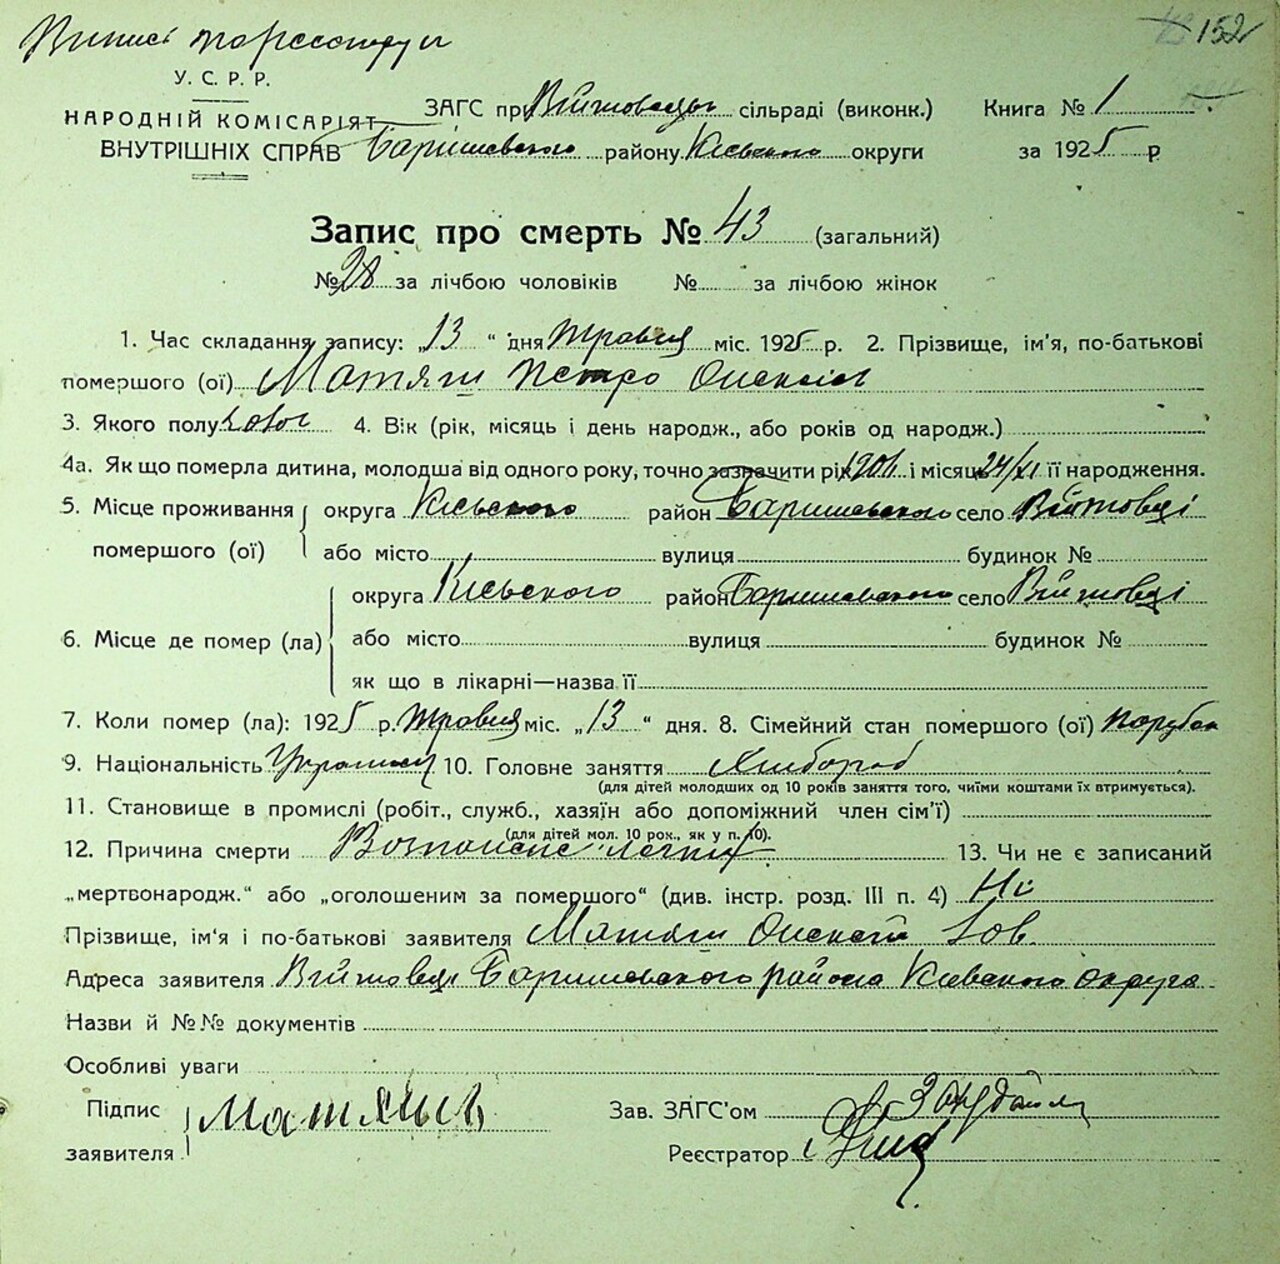 152
У. С. Р. Р.
НАРОДНІЙ КОМІСАРІЯТ
ВНУТРІШНІХ СПРАВ
ЗАГС при сільраді (виконк.) Книга № 1
Баришевского району Київського округи за 1925 р
Запис про смерть № 43 (загальний)
№ 28 за лічбою чоловіків № за лічбою жінок
1. Час складання запису: „13 “ дня травня міс. 1925 р. 2. Прізвище, ім'я, по-батькові
помершого (ої) Матяш Петро
3. Якого полу 4. Вік (рік, місяць і день народж., або років од народж.)
4а. Як що померла дитина, молодша від одного року, точно зазначити рік і місяць 24/XI її народження.
5. Місце проживання помершого (ої) округа район Баришевського село Війтовці
або місто вулиця будинок №
6. Місце де помер (ла) округа район Баришевського село Війтовці
або місто вулиця будинок №
як що в лікарні—назва її
7. Коли помер (ла): 1925 р. травня міс. „13 “ дня. 8. Сімейний стан помершого (ої) парубок
9. Національність 10. Головне заняття Хлібороб
(для дітей молодших од 10 років заняття того, чиїми коштами їх втримується).
11. Становище в промислі (робіт., служб., хазяїн або допоміжний член сім'ї)
(для дітей мол. 10 рок., як у п. 10).
12. Причина смерти легких 13. Чи не є записаний
„мертвонародж.“ або „оголошеним за помершого“ (див. інстр. розд. III п. 4) Ні
Прізвище, ім'я і по-батькові заявителя Матяш
Адреса заявителя Війтовці Баришевського района Киевского округа
Назви й №№ документів
Особливі уваги
Підпис заявителя
Зав. ЗАГС'ом
Реєстратор